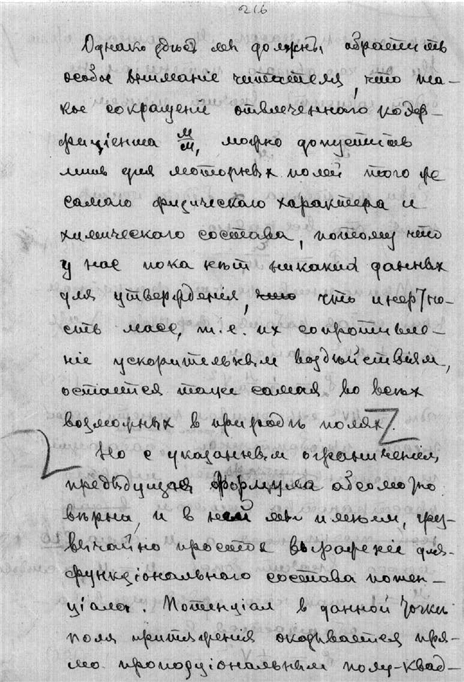 216
Однако здѣсь мы должны обратить
особое вниманіе читателя, что та-
кое сокращеніе отвлеченнаго коэф-
фиціента M/M, можно допустить
лишь для моторныхъ полей того же
самаго физическаго характера и
химическаго состава, потому что
у нас пока нѣт никаких данных
для утвержденія, что инертно-
сть масс, т.е. их сопротивле-
ніе ускорительным воздѣйствіям,
остается такая самая во всѣх
возможных в природѣ полях.
Но с указанным ограниченіем
предыдущая формула абсолютно
вѣрна, и в ней мы имѣем, чрез-
вычайно простое выраженіе для
функціональнаго состава потен-
ціала. Потенціал в данной точкѣ
поля притяженія оказывается пря-
мо пропорціональным полу-квад-